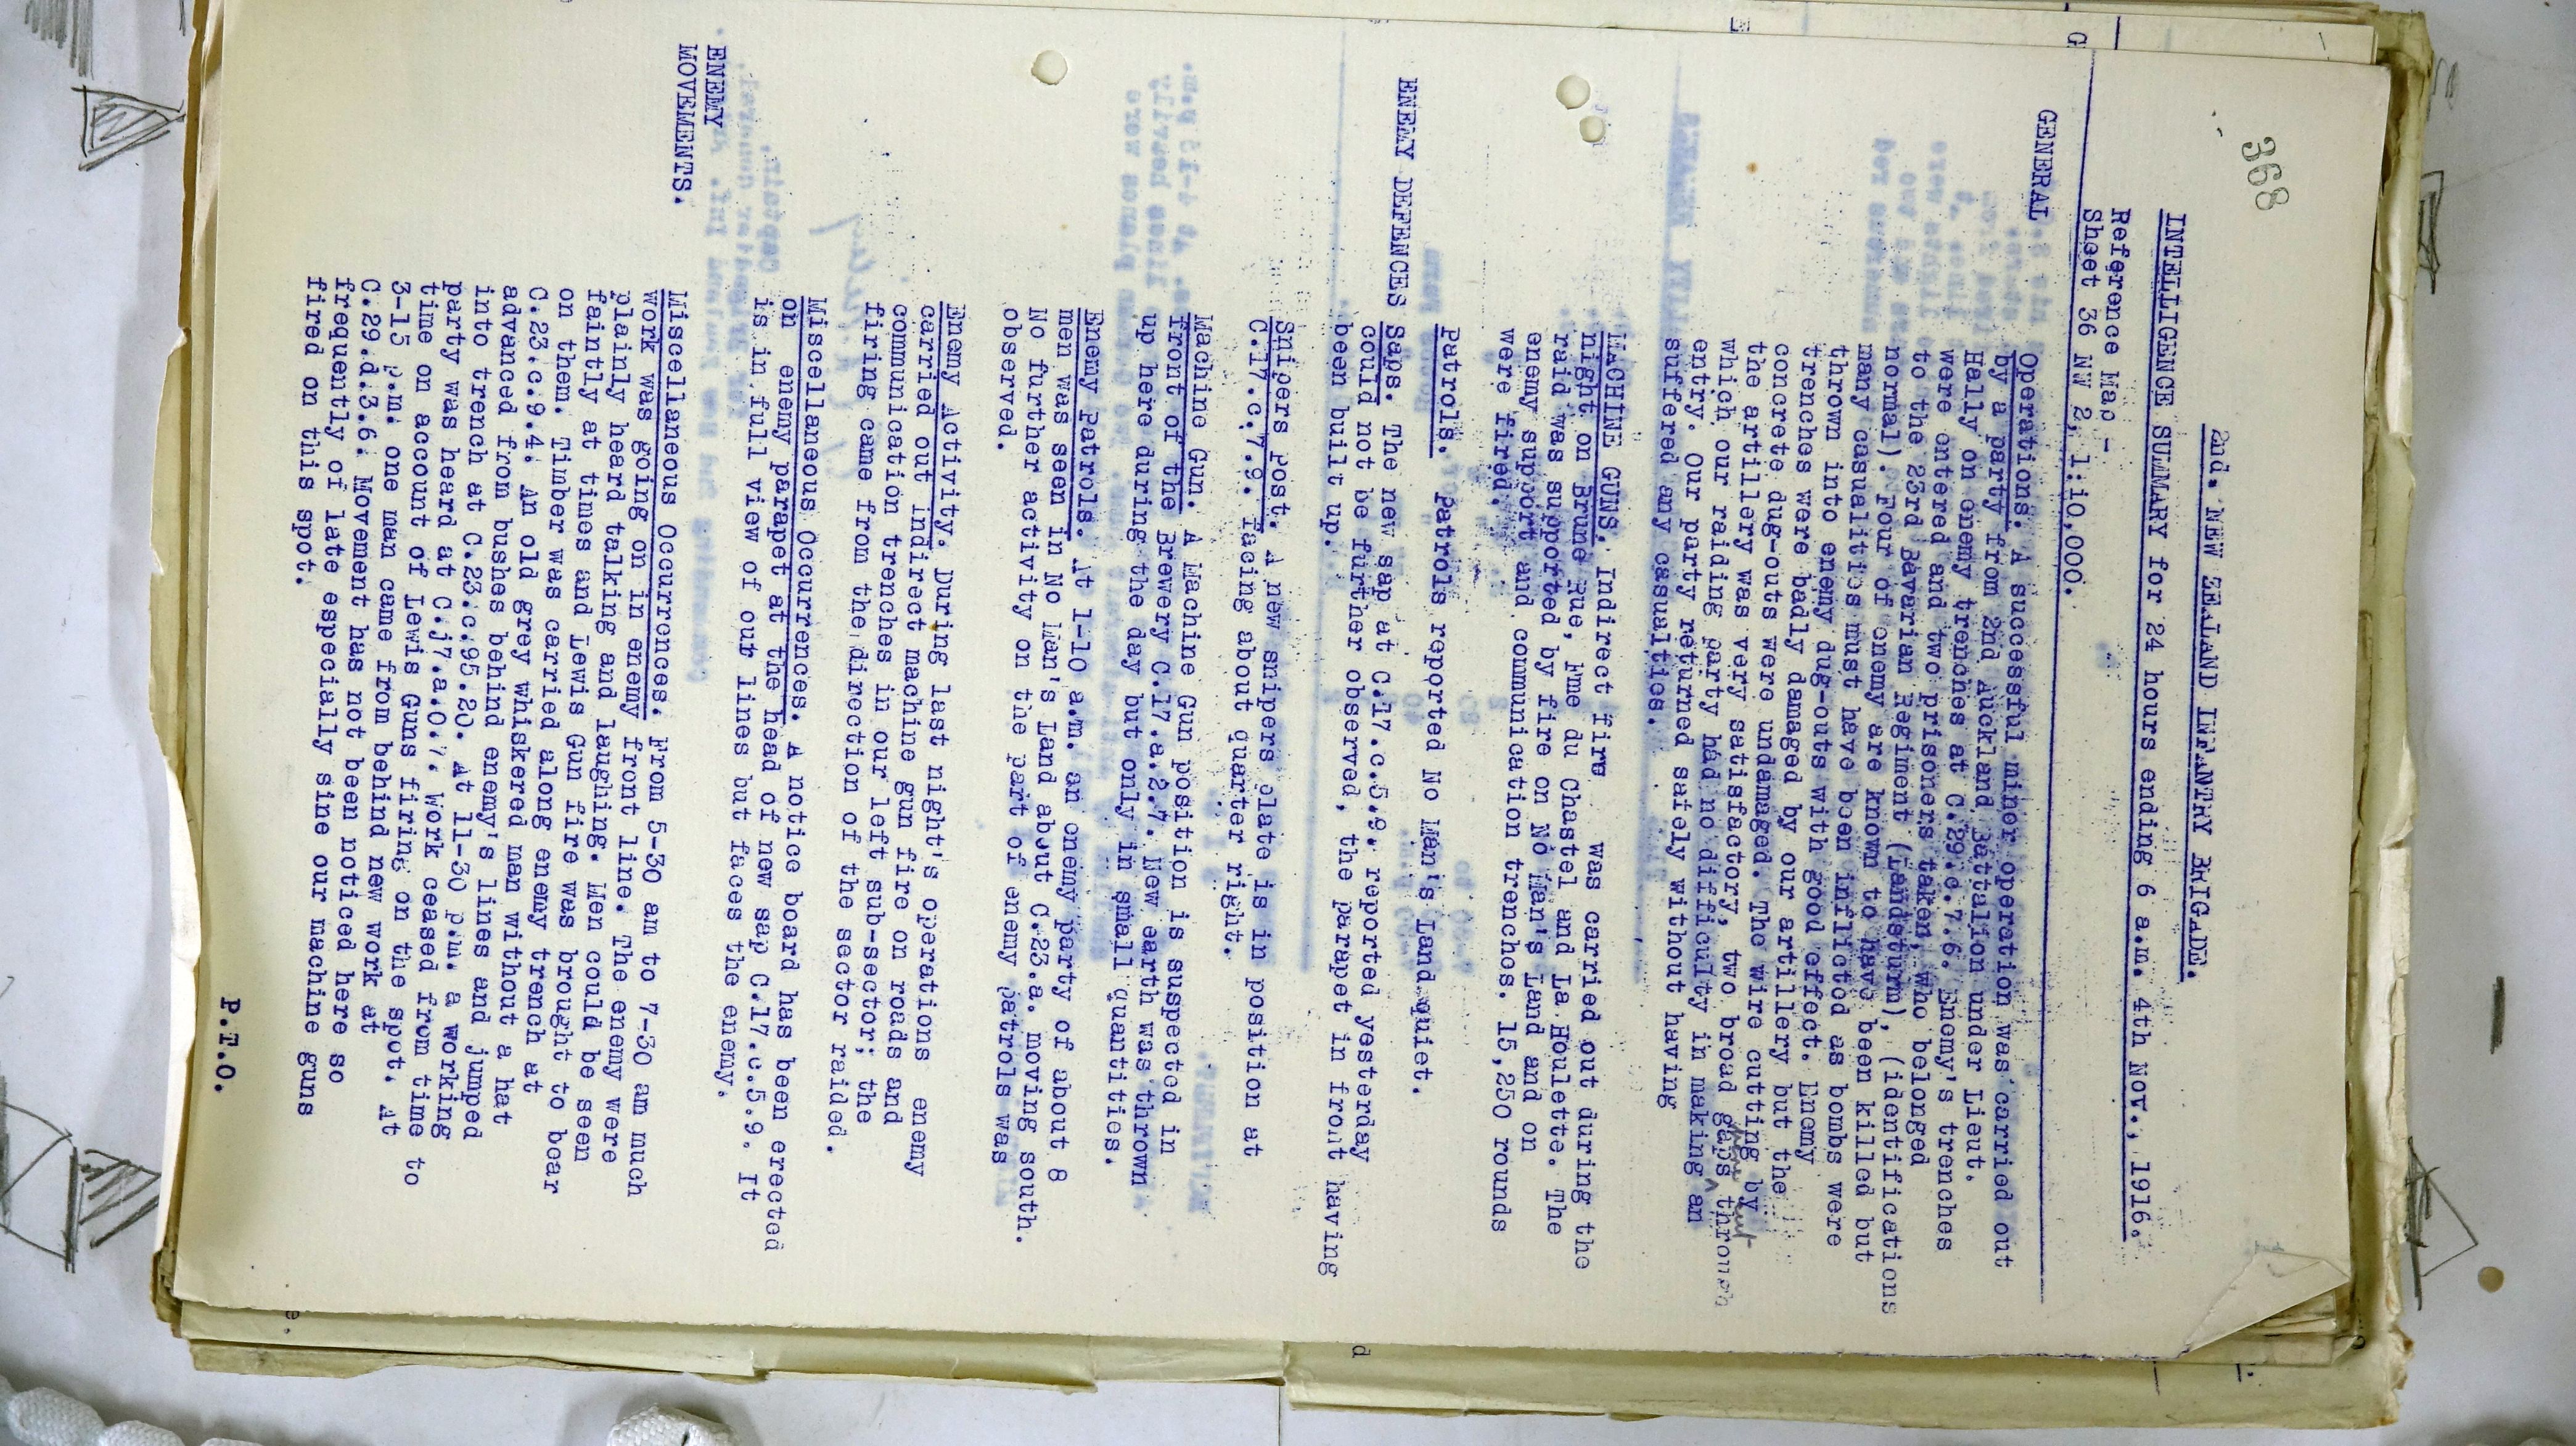 368
2nd. NEW ZEALAND INFANTRY BRIGADE.
INTELLIGENCE SUMMARY for 24 hours ending 6 a.m. 4th Nov., 1916.
Reference Map -
Sheet 36 NW 2, 1:10,000.
GENERAL
Operations. A successful minor operation was carried out
by a party from 2nd Auckland Battalion under Lieut.
Hally on enemy trenches at C.29.c.7.6. Enemy's trenches
were entered and two prisoners taken, who belonged
to the 23rd Bavarian Regiment (Landsturm), (identifications
normal). Four of enemy are known to have been killed but
many casualities must have been inflicted as bombs were
thrown into enemy dug-outs with good effect. Enemy
trenches were badly damaged by our artillery but the
concrete dug-outs were undamaged. The wire cutting by
the artillery was very satisfactory, two broad gaps through
which our raiding party had no difficulty in making an
entry. Our party returned safely without having
suffered any casualties.
MACHINE GUNS. Indirect fire was carried out during the
night on Brune Rue, Fme du Chastel and La Houlette. The
raid was supported by fire on No Man's Land and on
enemy support and communication trenches. 15,250 rounds
were fired.
Patrols. Patrols reported No Man's Land quiet.
ENEMY DEFENCES Saps. The new sap at C.17.c.5.9. reported yesterday
could not be further observed, the parapet in front having
been built up.
Snipers Post. A new snipers plate is in position at
C.17.c.7.9. facing about quarter right.
Machine Gun. A Machine Gun position is suspected in
front of the Brewery C.17.a.2.7. New earth was thrown
up here during the day but only in small quantities.
Enemy Patrols. At 1-10 a.m. an enemy party of about 8
men was seen in No Man's Land about C.23.a. moving south.
No further activity on the part of enemy patrols was
observed.
Enemy Activity. During last night's operations enemy
carried out indirect machine gun fire on roads and
communication trenches in our left sub-sector; the
firing came from the direction of the sector raided.
Miscellaneous Occurrences. A notice board has been erected
on enemy parapet at the head of new sap C.17.c.5.9. It
is in full view of our lines but faces the enemy.
ENEMY
MOVEMENTS.
Miscellaneous Occurrences. From 5-30 am to 7-30 am much
work was going on in enemy front line. The enemy were
plainly heard talking and laughing. Men could be seen
faintly at times and Lewis Gun fire was brought to bear
on them. Timber was carried along enemy trench at
C.23.c.9.4. An old grey whiskered man without a hat
advanced from bushes behind enemy's lines and jumped
into trench at C.23.c.95.20. At 11-30 p.m. a working
party was heard at C.17.a.0.7. Work ceased from time to
time on account of Lewis Guns firing on the spot. At
3-15 p.m. one man came from behind new work at
C.29.d.3.6. Movement has not been noticed here so
frequently of late especially sine our machine guns
fired on this spot.
P.T.O.